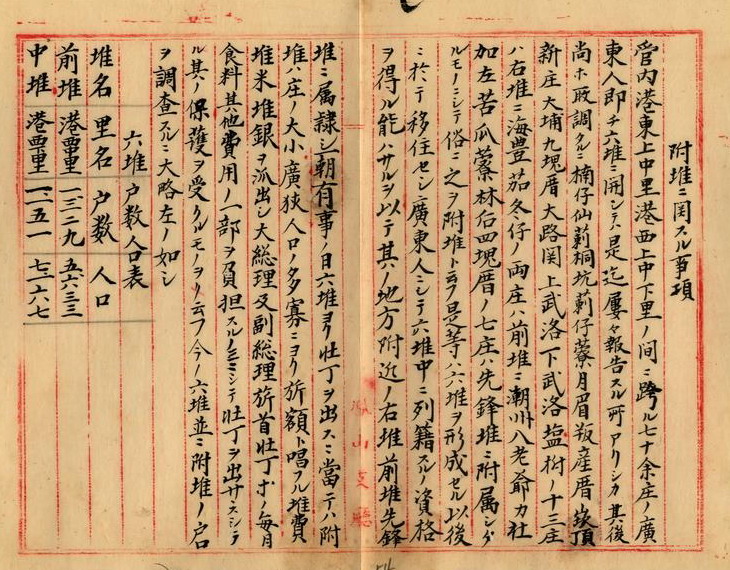 附堆ニ関スル事項
管内港東上中里港西上中下里ノ間ニ跨ル七十余庄ノ廣
東人即チ六堆ニ関シテハ是迄屡々報告スル所アリシカ其後
尚ホ取調クルニ楠仔仙莿桐坑莿仔藔月眉叛産厝崁頂
新庄大埔九塊厝大路関上武洛下武洛塩樹ノ十三庄
ハ右堆ニ海豊茄冬仔ノ両庄ハ前堆ニ潮州八老爺力社
加左苦瓜藔林后四塊厝ノ七庄ハ先鋒堆ニ附属シタ
ルモノニシテ俗ニ之ヲ附堆ト云フ是等ハ六堆ヲ形成セル以後
ニ於テ移住セシ廣東人ニシテ六堆中ニ列籍スルノ資格
ヲ得ル能ハサルヲ以テ其ノ地方附近ノ右堆前堆先鋒
堆ニ属隷シ一朝有事ノ日六堆ヨリ壮丁ヲ出スニ當テハ附
堆ハ庄ノ大小廣狭人口ノ多寡ニヨリ旂額ト唱フル堆費
堆米堆銀ヲ派出シ大総理又副総理旂首壮丁等ノ毎月
食料其他費用ノ一部ヲ負担スルノミニシテ壮丁ヲ出サスシテ
ル其ノ保護ヲ受クルモノヲ云フ今ノ六堆並ニ附堆ノ戸口
ヲ調査スルニ大略左ノ如シ
六堆戸数人口表
堆名 里名 戸数 人口
前堆 港西里 一三二九 五六三三
中堆 港西里 一二五一 七三六七
鳳山支廳